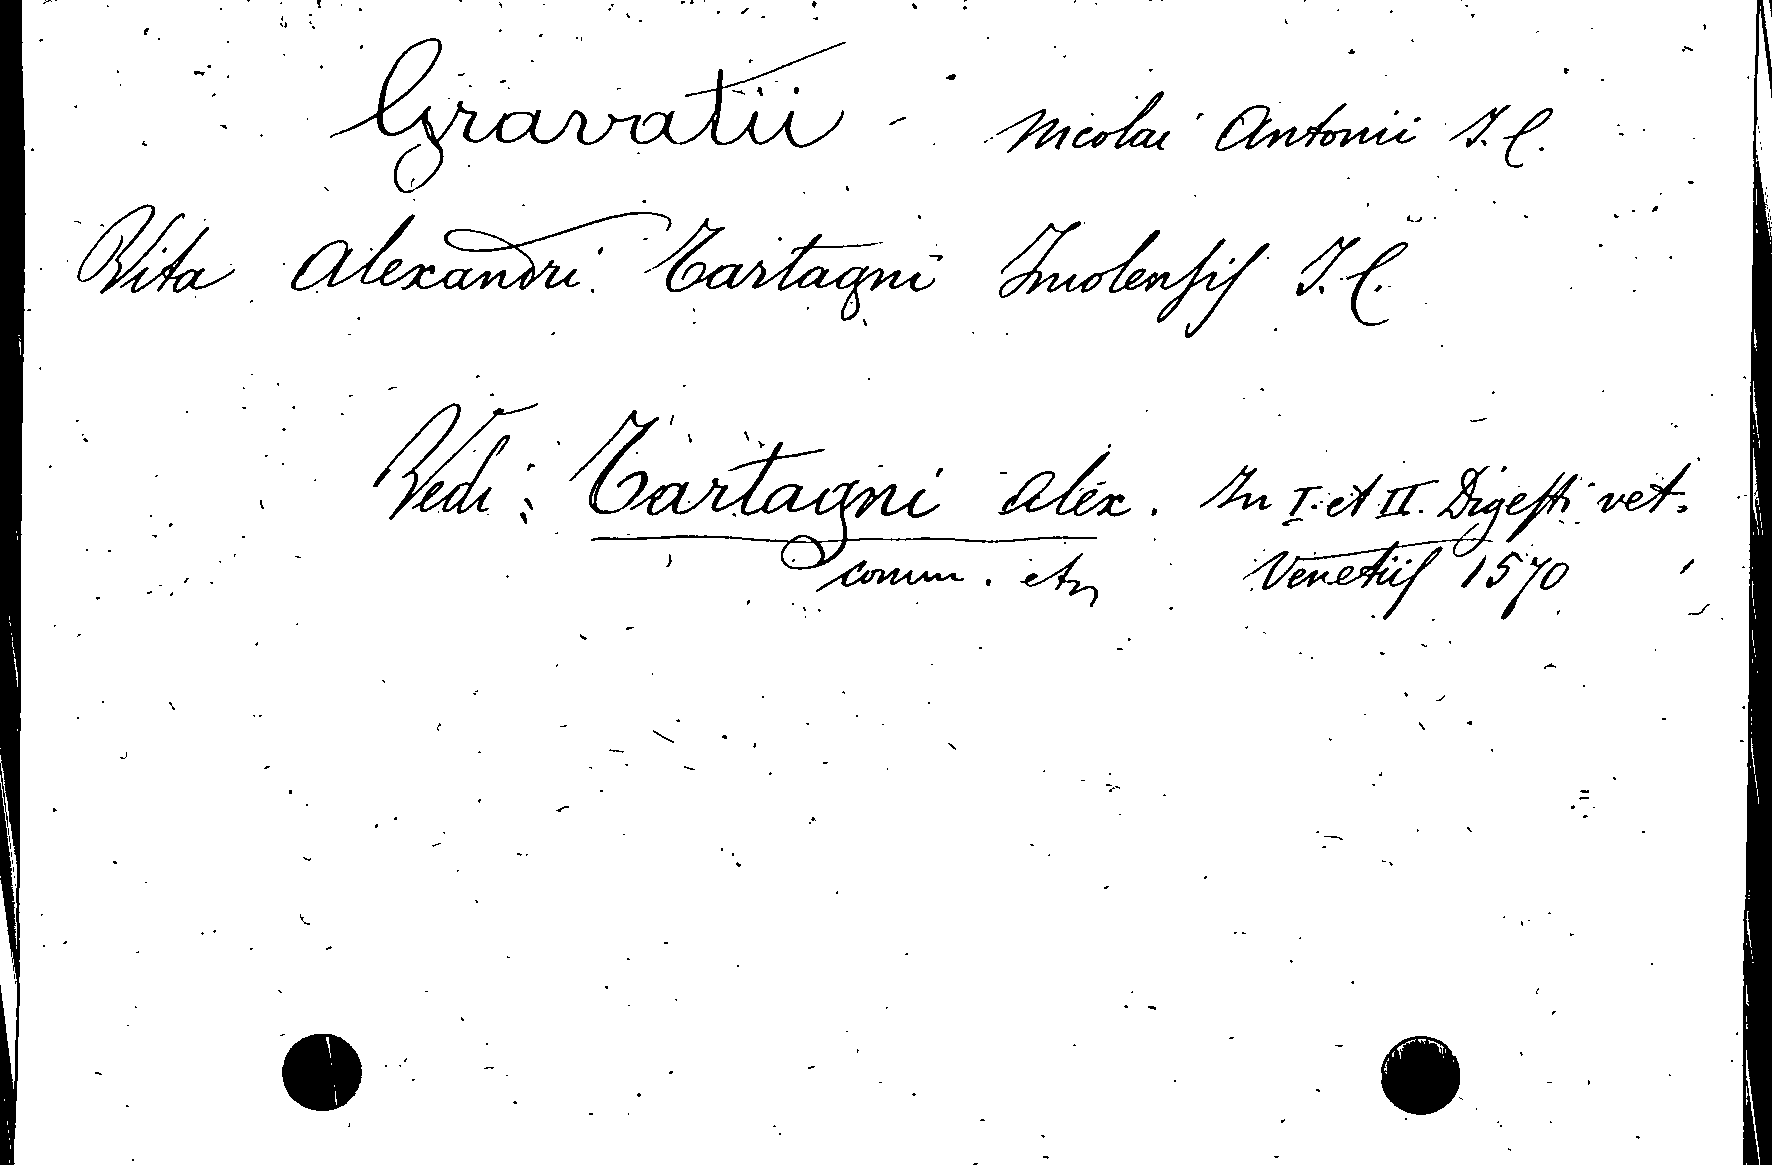 Gravatii - Nicolai Antonii I. C.
Vita Alexandri Tartagni Imolensis I. C.
Vedi: Tartagni Alex. In I. et II. Digesti vet.
comm. etc Venetiis 1570